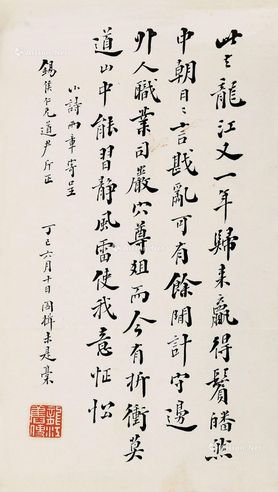 此龍江又一年歸來贏得鬢皤然
中朝日日言戡亂可有餘閒計守邊
人職業司嚴穴尊俎而今有折衝莫
道山中能習靜風雷使我意怔忪
小詩兩章寄呈
錫侯仁兄道尹斧正
丁巳六月十日未是藁
龍江